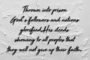 Thrown into prison
God's followers and nations
glorified His deeds
showing to all peoples that
they will not give up their faith.